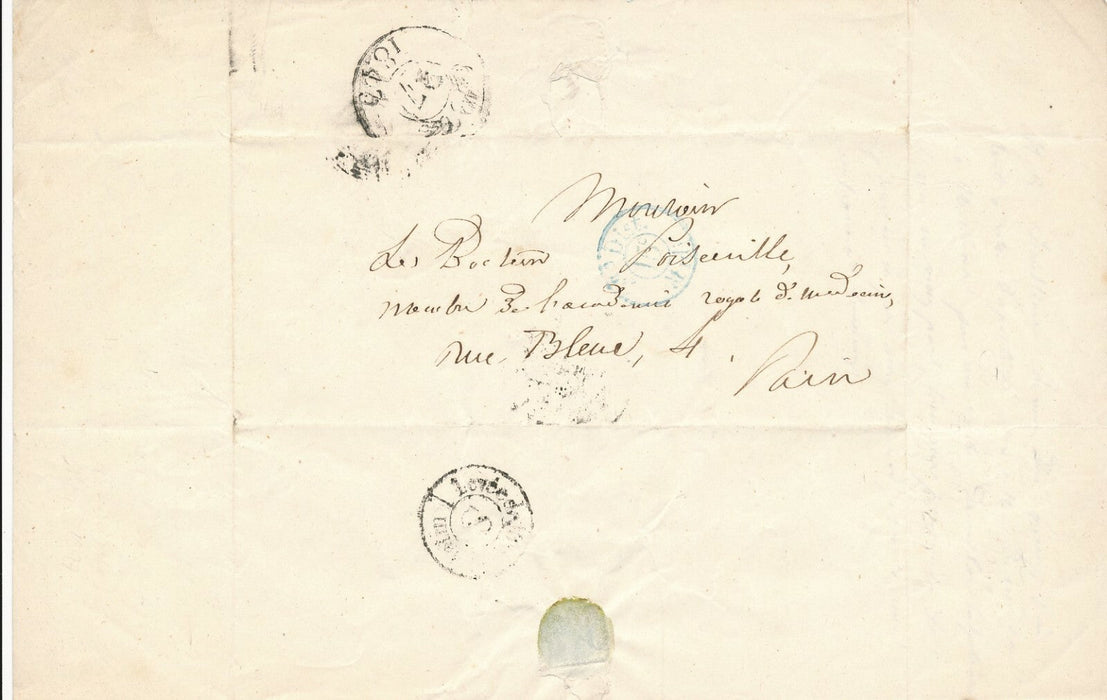 1843
Monsieur
Le Docteur Poiseuille,
membre de l'académie royale de médecine,
rue Bleue, 4.
Paris
Levée de